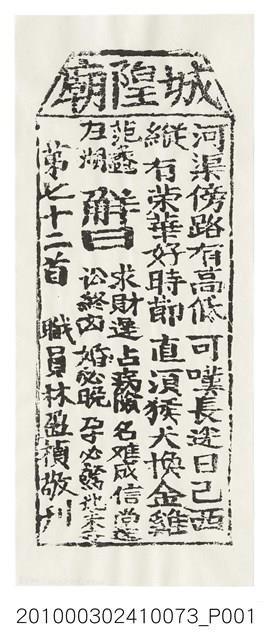 城隍廟
河渠傍路有高低 可嘆長途日已西
縱有荣華好時節 直須猴犬換金雞
范蠡
湖
解曰
求財遲占病險名难成信
訟終凶婚必脫孕必驚地未
第七十二首 職員林盈禎敬刊
201000302410073_P001